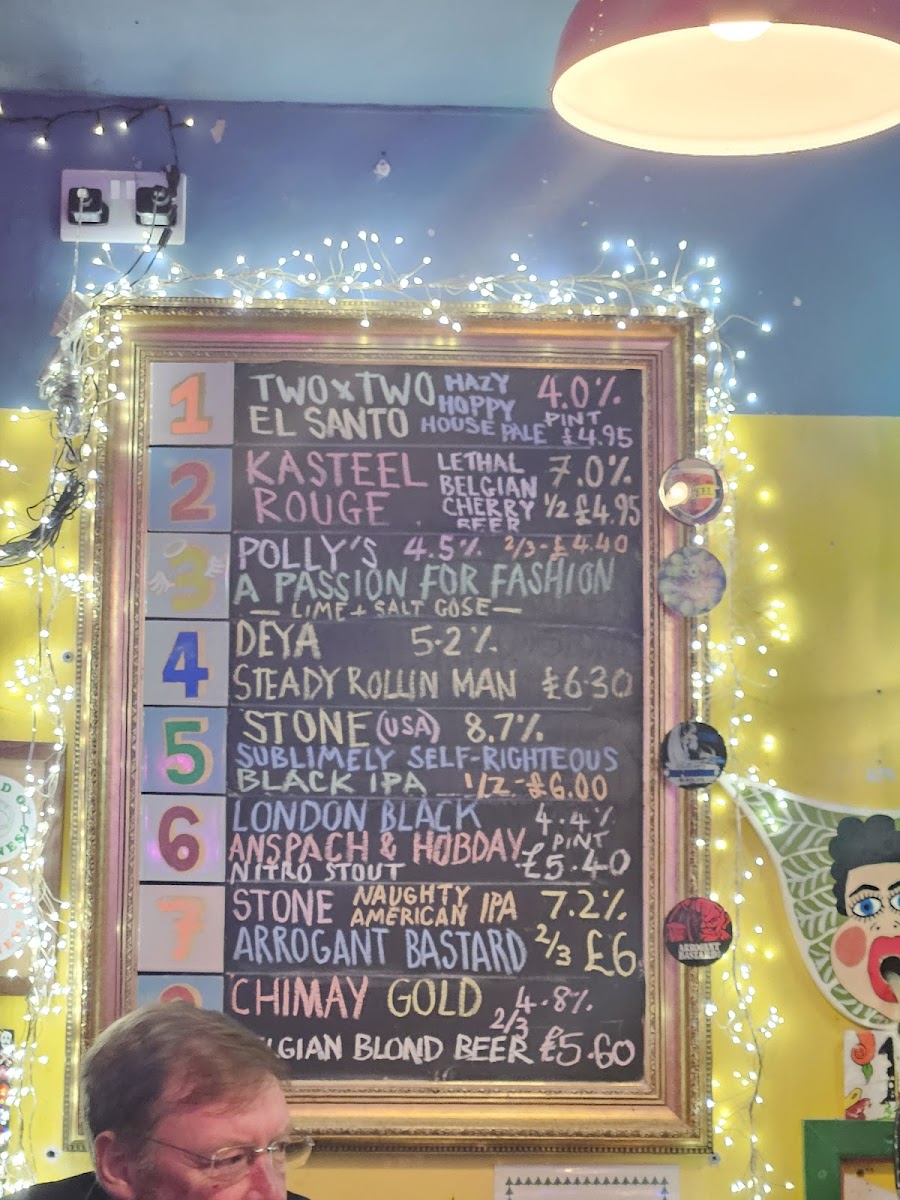 1
TWO x TWO HAZY 4.0%
EL SANTO HOPPY PINT
HOUSE PALE £4.95
2
KASTEEL LETHAL 7.0%
ROUGE BELGIAN
CHERRY 1/2 £4.95
BEER
3
POLLY'S 4.5% 2/3-£4.40
A PASSION FOR FASHION
— LIME + SALT GOSE —
4
DEYA 5.2%
STEADY ROLLIN MAN £6.30
5
STONE (USA) 8.7%
SUBLIMELY SELF-RIGHTEOUS
BLACK IPA 1/2-£6.00
6
LONDON BLACK 4.4%
ANSPACH & HOBDAY PINT
NITRO STOUT £5.40
7
STONE NAUGHTY 7.2%
AMERICAN IPA
ARROGANT BASTARD 2/3 £6
CHIMAY GOLD 4.8%
2/3
LGIAN BLOND BEER £5.60
ARROGANT